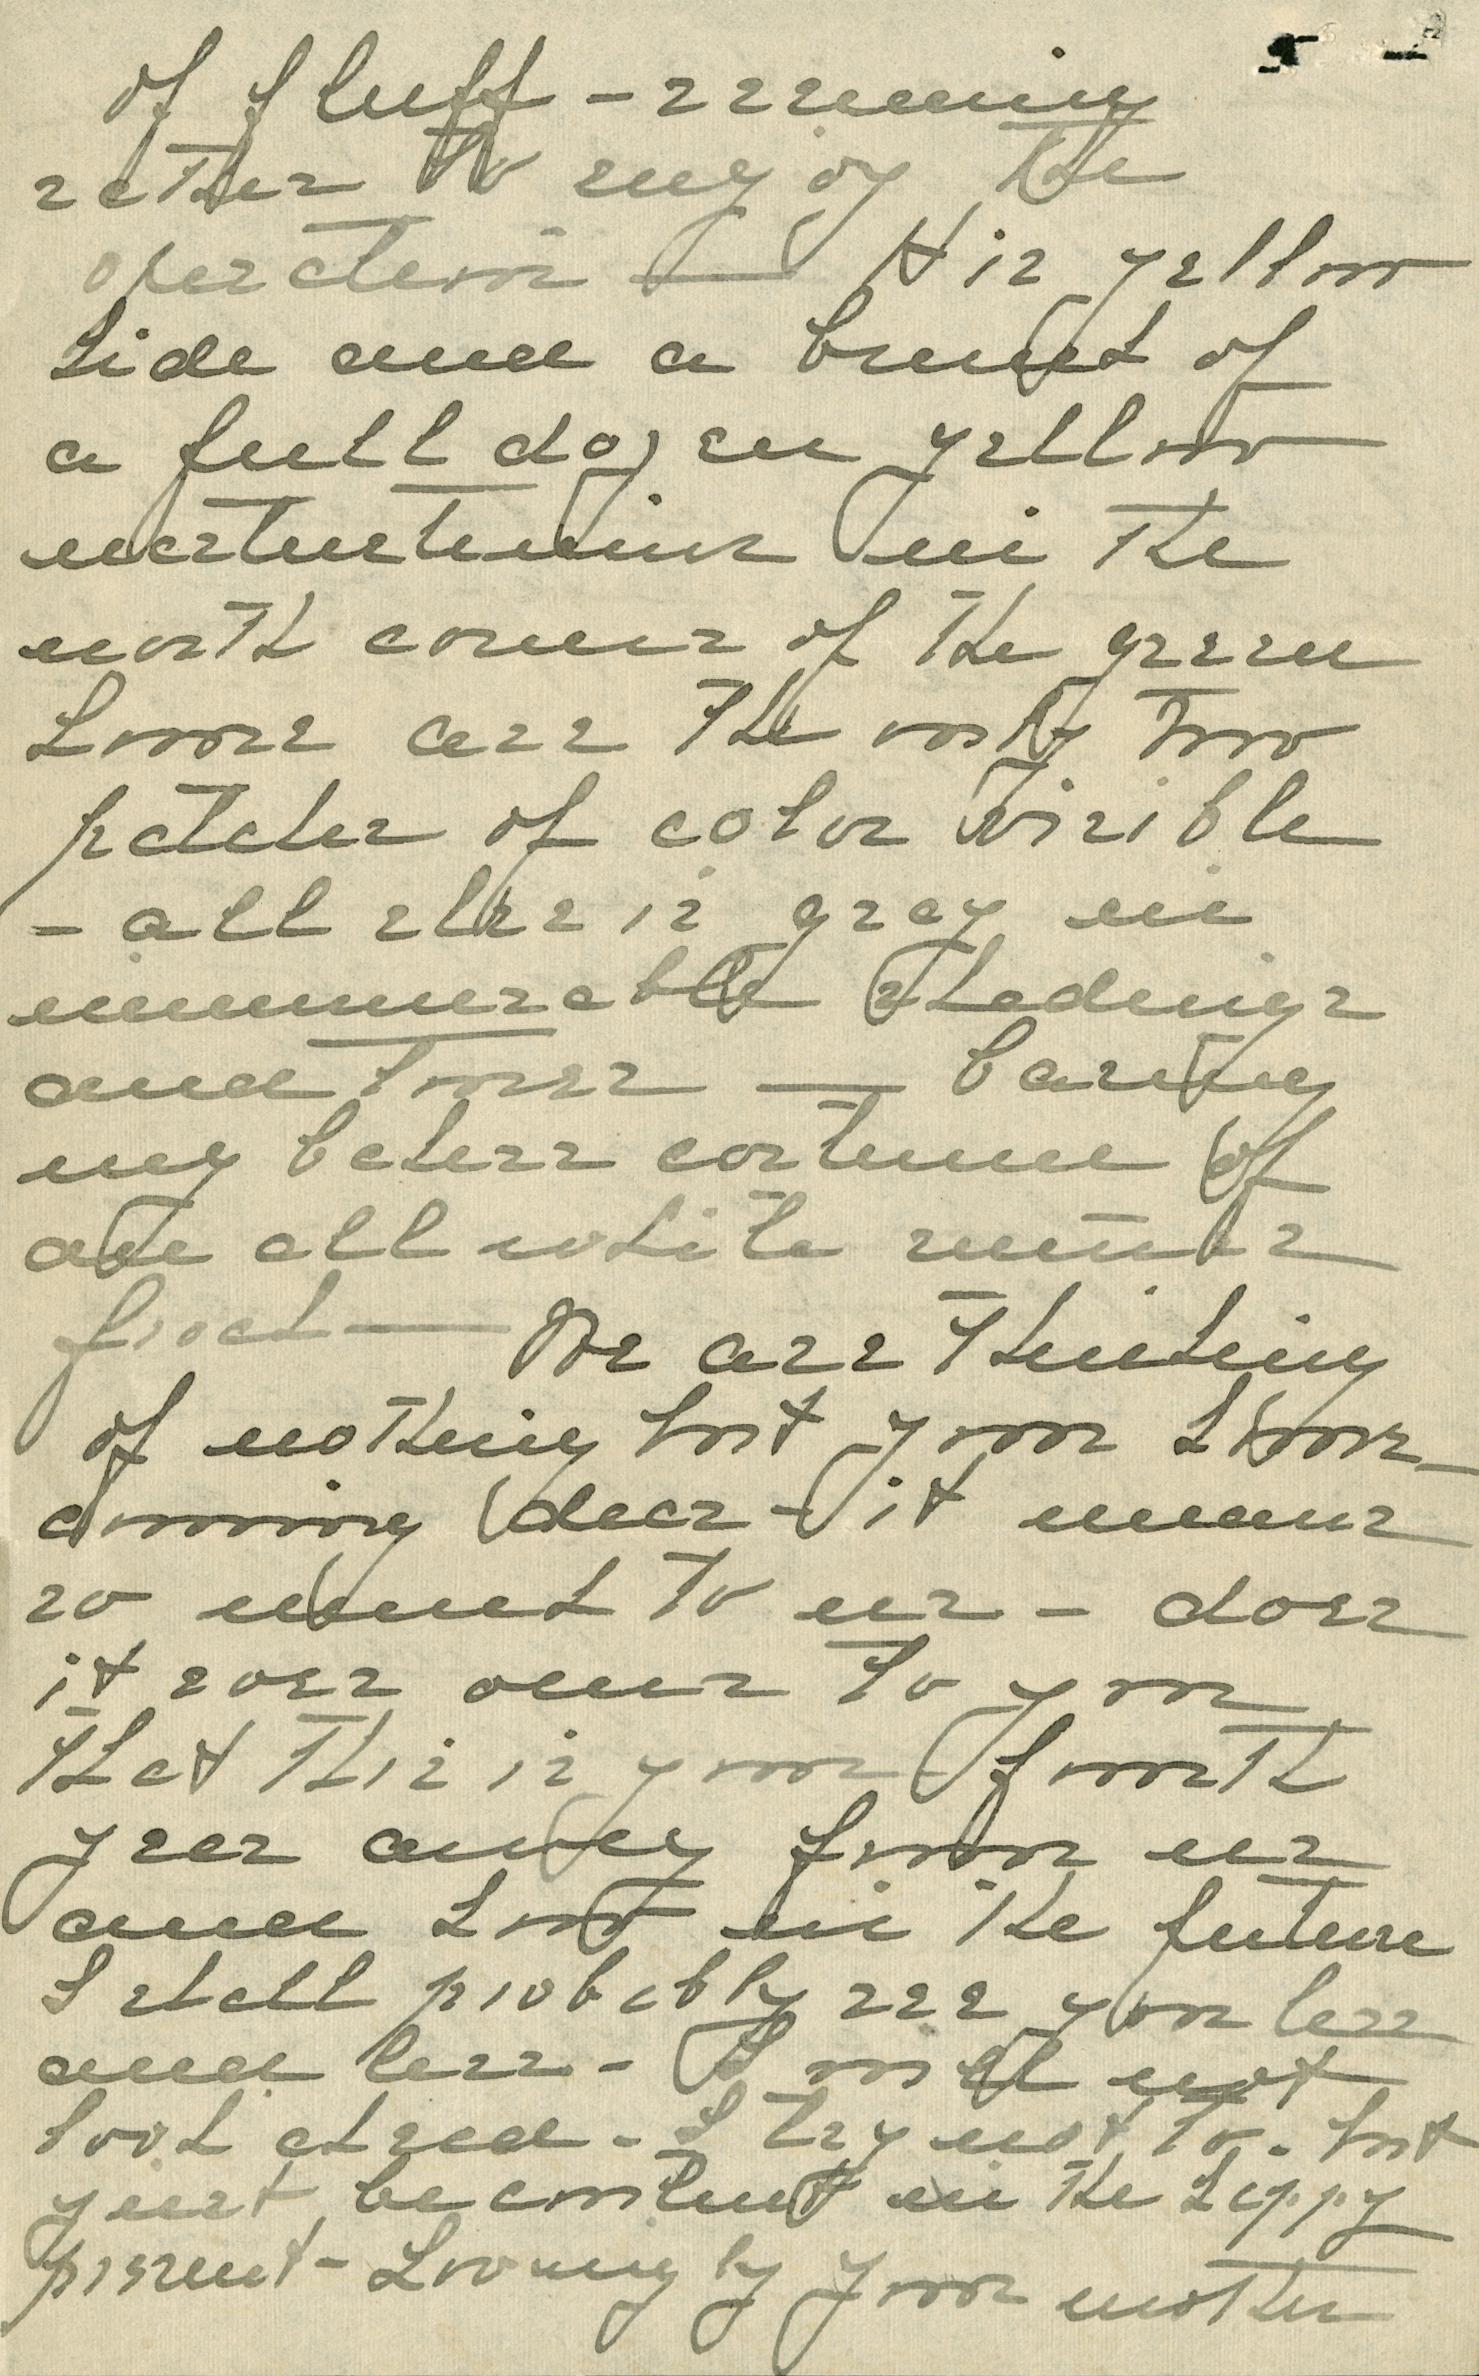 of fluff - seeming
rather to enjoy the
operation — His yellow
hide and a bunch of
a full dozen yellow
nasturtiums in the
north corner of the green
house are the only two
patches of color visible
- all else is gray in
innumerable shadings
and tones — baring
my batess costume of
an all white
frock — We are thinking
of nothing but your home
coming dear - it means
so much to us - does
it ever occur to you
that this is your fourth
year away from us
and how in the future
I shall probably see you less
and less - I will not
look ahead - I try not to. but
just be content in the happy
present - Lovingly your mother